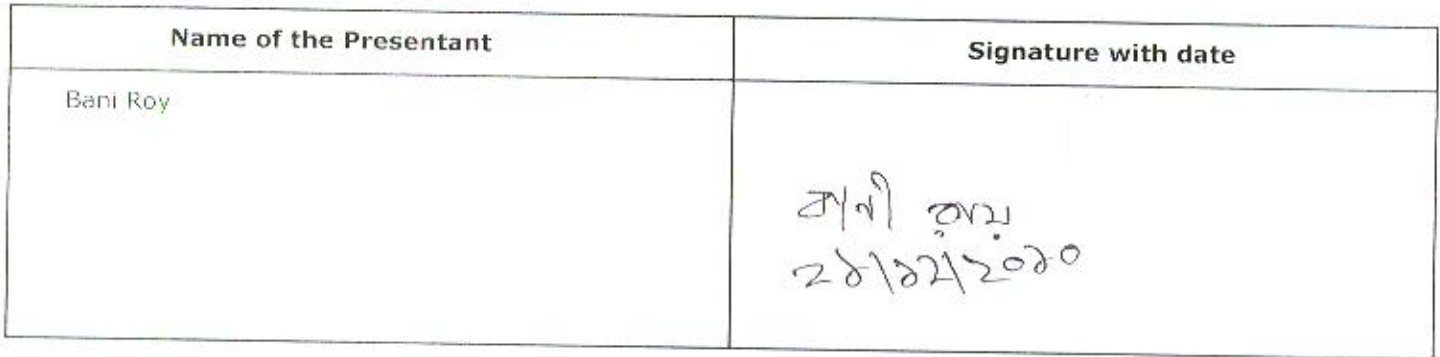 Name of the Presentant
Signature with date
Bani Roy
বানী রায়
২১/১২/২০১০